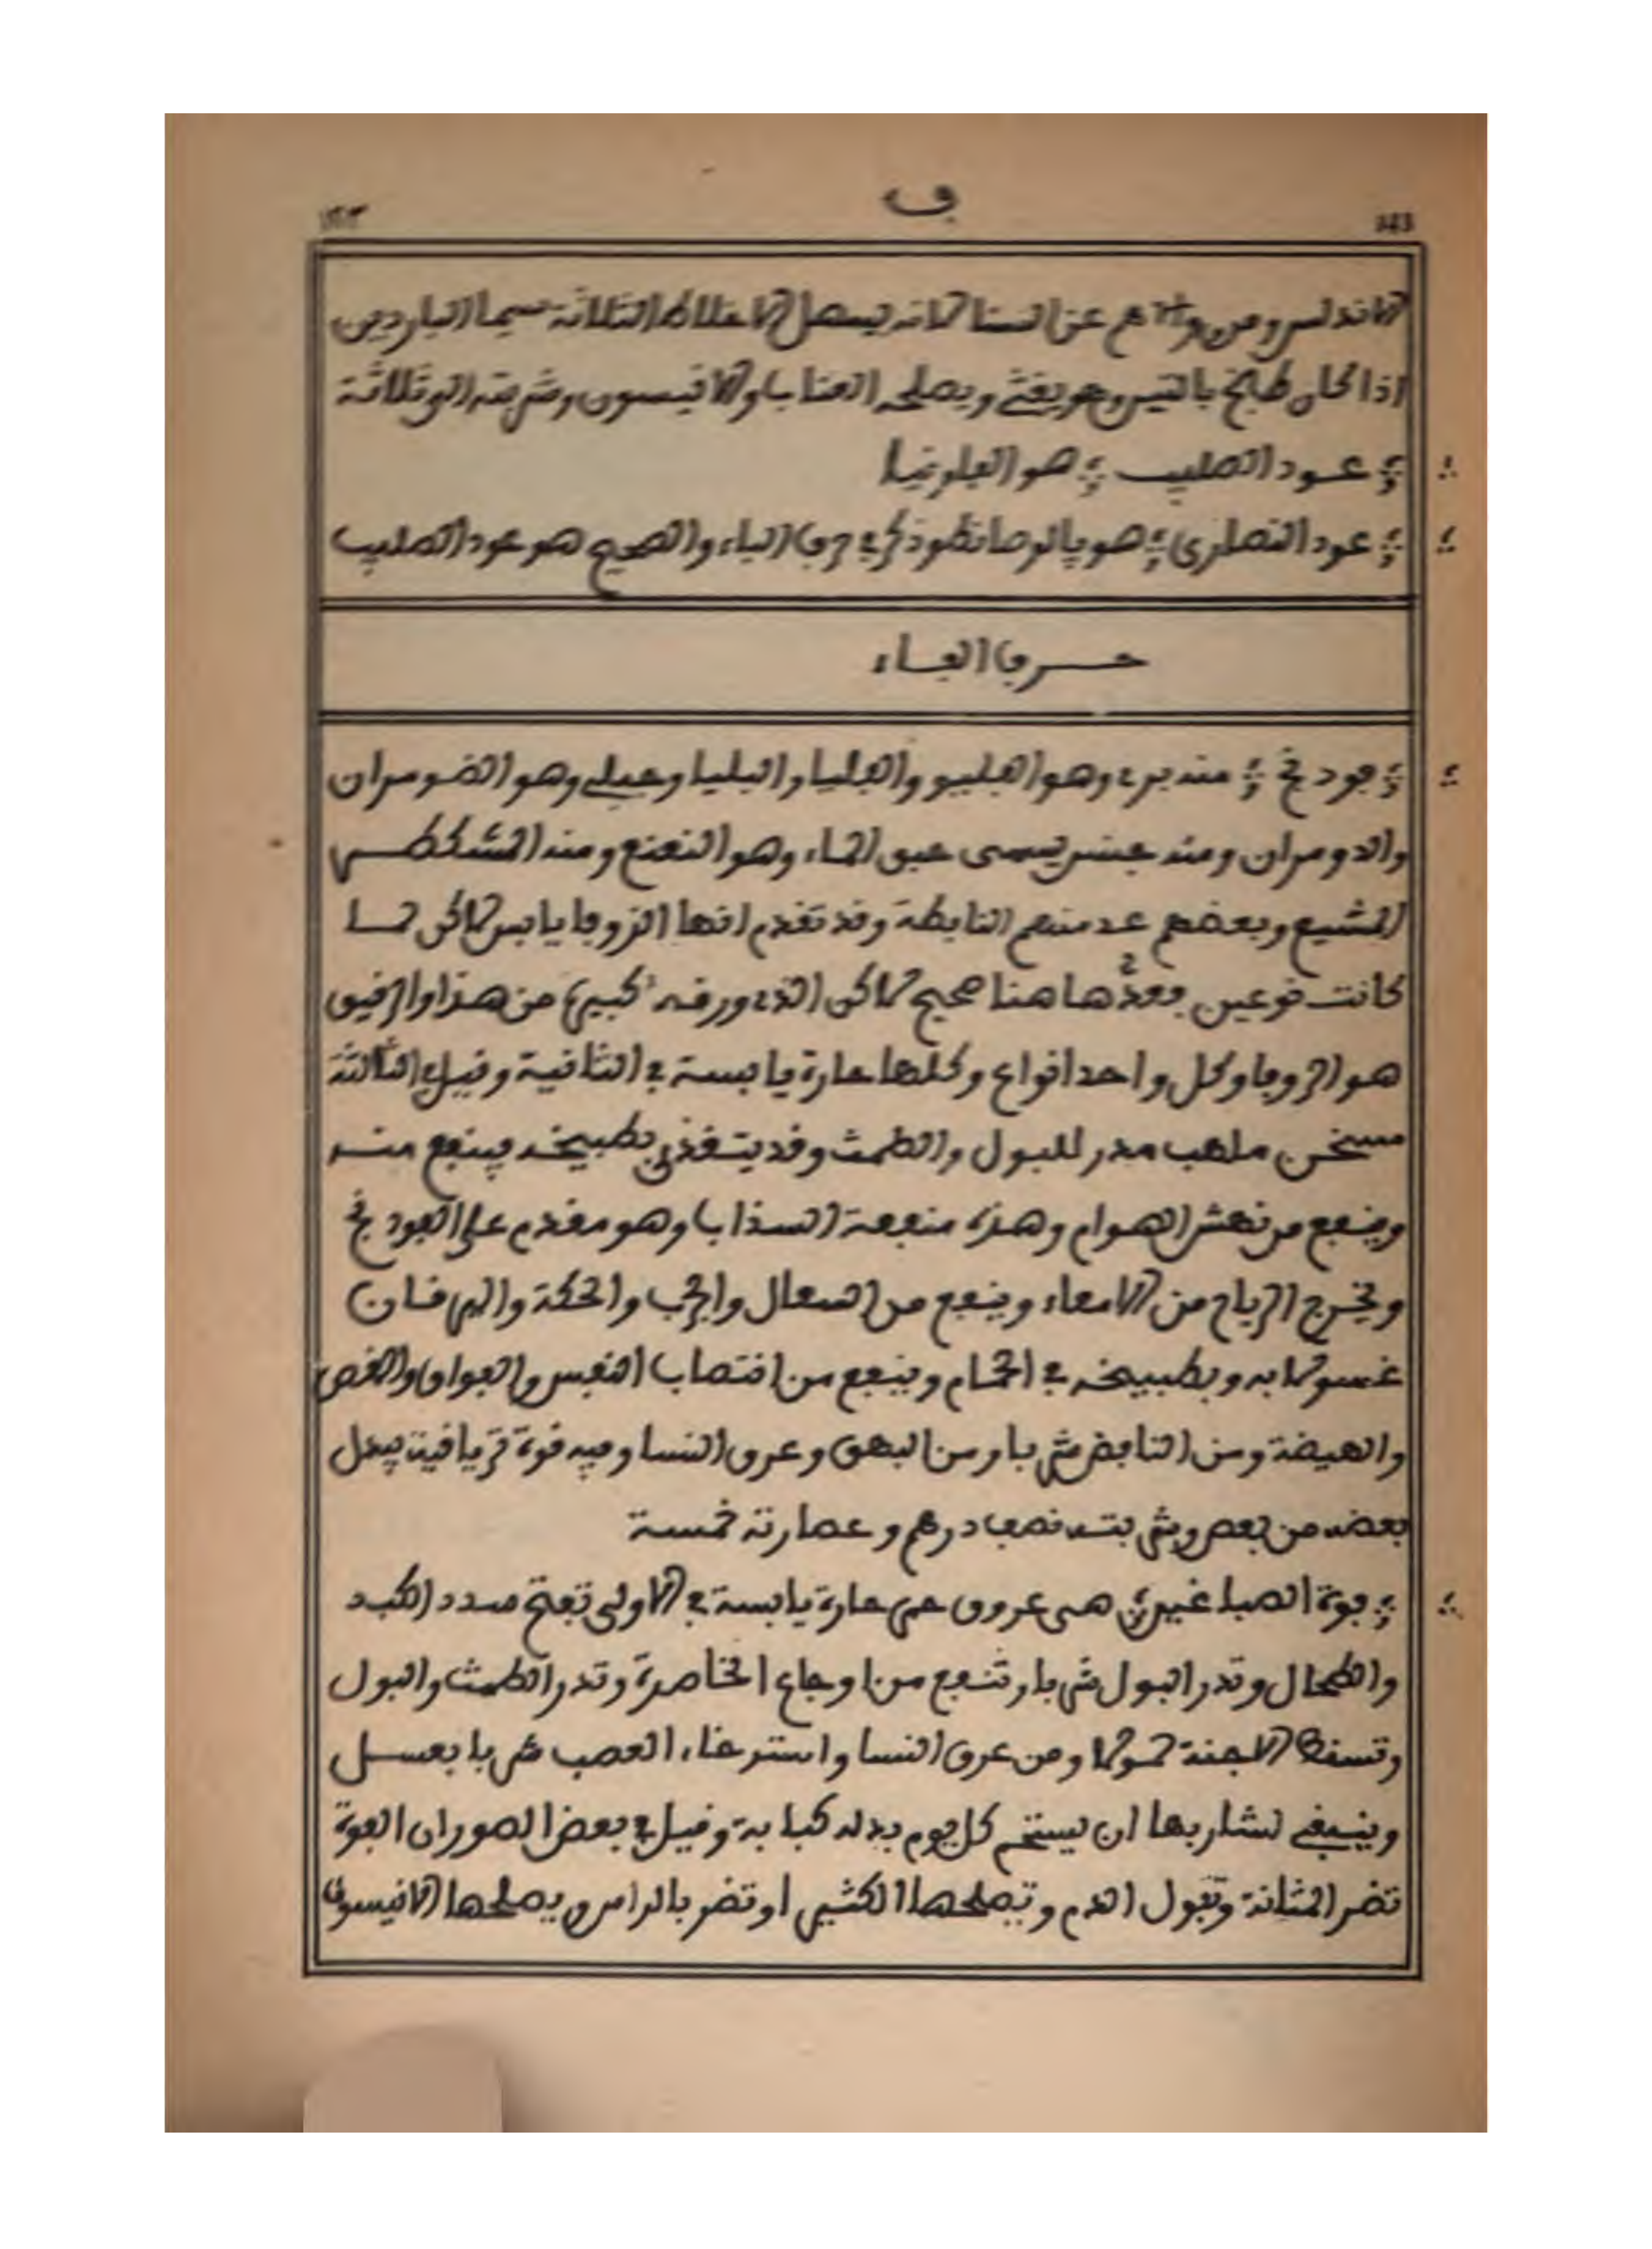 ف
الاندلس ومن والاهم عن السنا لانه يسهل الاخلاط الثلاثة سيما الباردين
اذا كان طبخ بالتين وهو يغثي ويصلحه العناب والانيسون وشربته الى ثلاثة
عود الصليب هو الفاونيا
عود النصارى هو ذكر في حرف الباء والصحيح هو عود الصليب
حرف الفاء
فودنج منه بري وهو الفليو والفليا والبليا وجبلي وهو الضومران
والدومران ومنه جنس يسمى حبق الماء وهو النعنع ومنه
المشيع وبعضهم عد منهم النابطة وقد تقدم انها الزوفا يابس لاكن لما
كانت نوعين فعدها هنا صحيح لاكن الذي ورقه كبير من هذا والرقيق
هو الزوفا وكل واحد انواع وكلها حارة يابسة في الثانية وقيل في الثالثة
مسخن ملهب مدر للبول والطمث وقد يتغذى بطبيخه فينفع منه
وينفع من نهش الهوام وهذه منفعة السذاب وهو مقدم على الفودنج
ويخرج الرياح من الامعاء وينفع من السعال والجرب والحكة واليرقان
غسولا به وبطبيخه في الحمام وينفع من انتصاب النفس والفواق والمغص
والهيضة ومن النافض شربا ومن البهق وعرق النسا وفيه قوة ترياقية يبدل
بعضه من بعض وشربته نصف درهم وعصارته خمسة
فوة الصباغين هى عروق حمر حارة يابسة في الاولى تفتح سدد الكبد
والطحال وتدر البول شربا وتنفع من اوجاع الخاصرة وتدر الطمث والبول
وتسقط الاجنة حمولا ومن عرق النسا واسترخاء العصب شربا بعسل
وينبغي لشاربها ان يستحم كل يوم بدله كبابة وقيل في بعض الصور ان الفوة
تضر المثانة وتبول الدم وتصلحها الكثيرا وتضر بالراس ويصلحها الانيسون